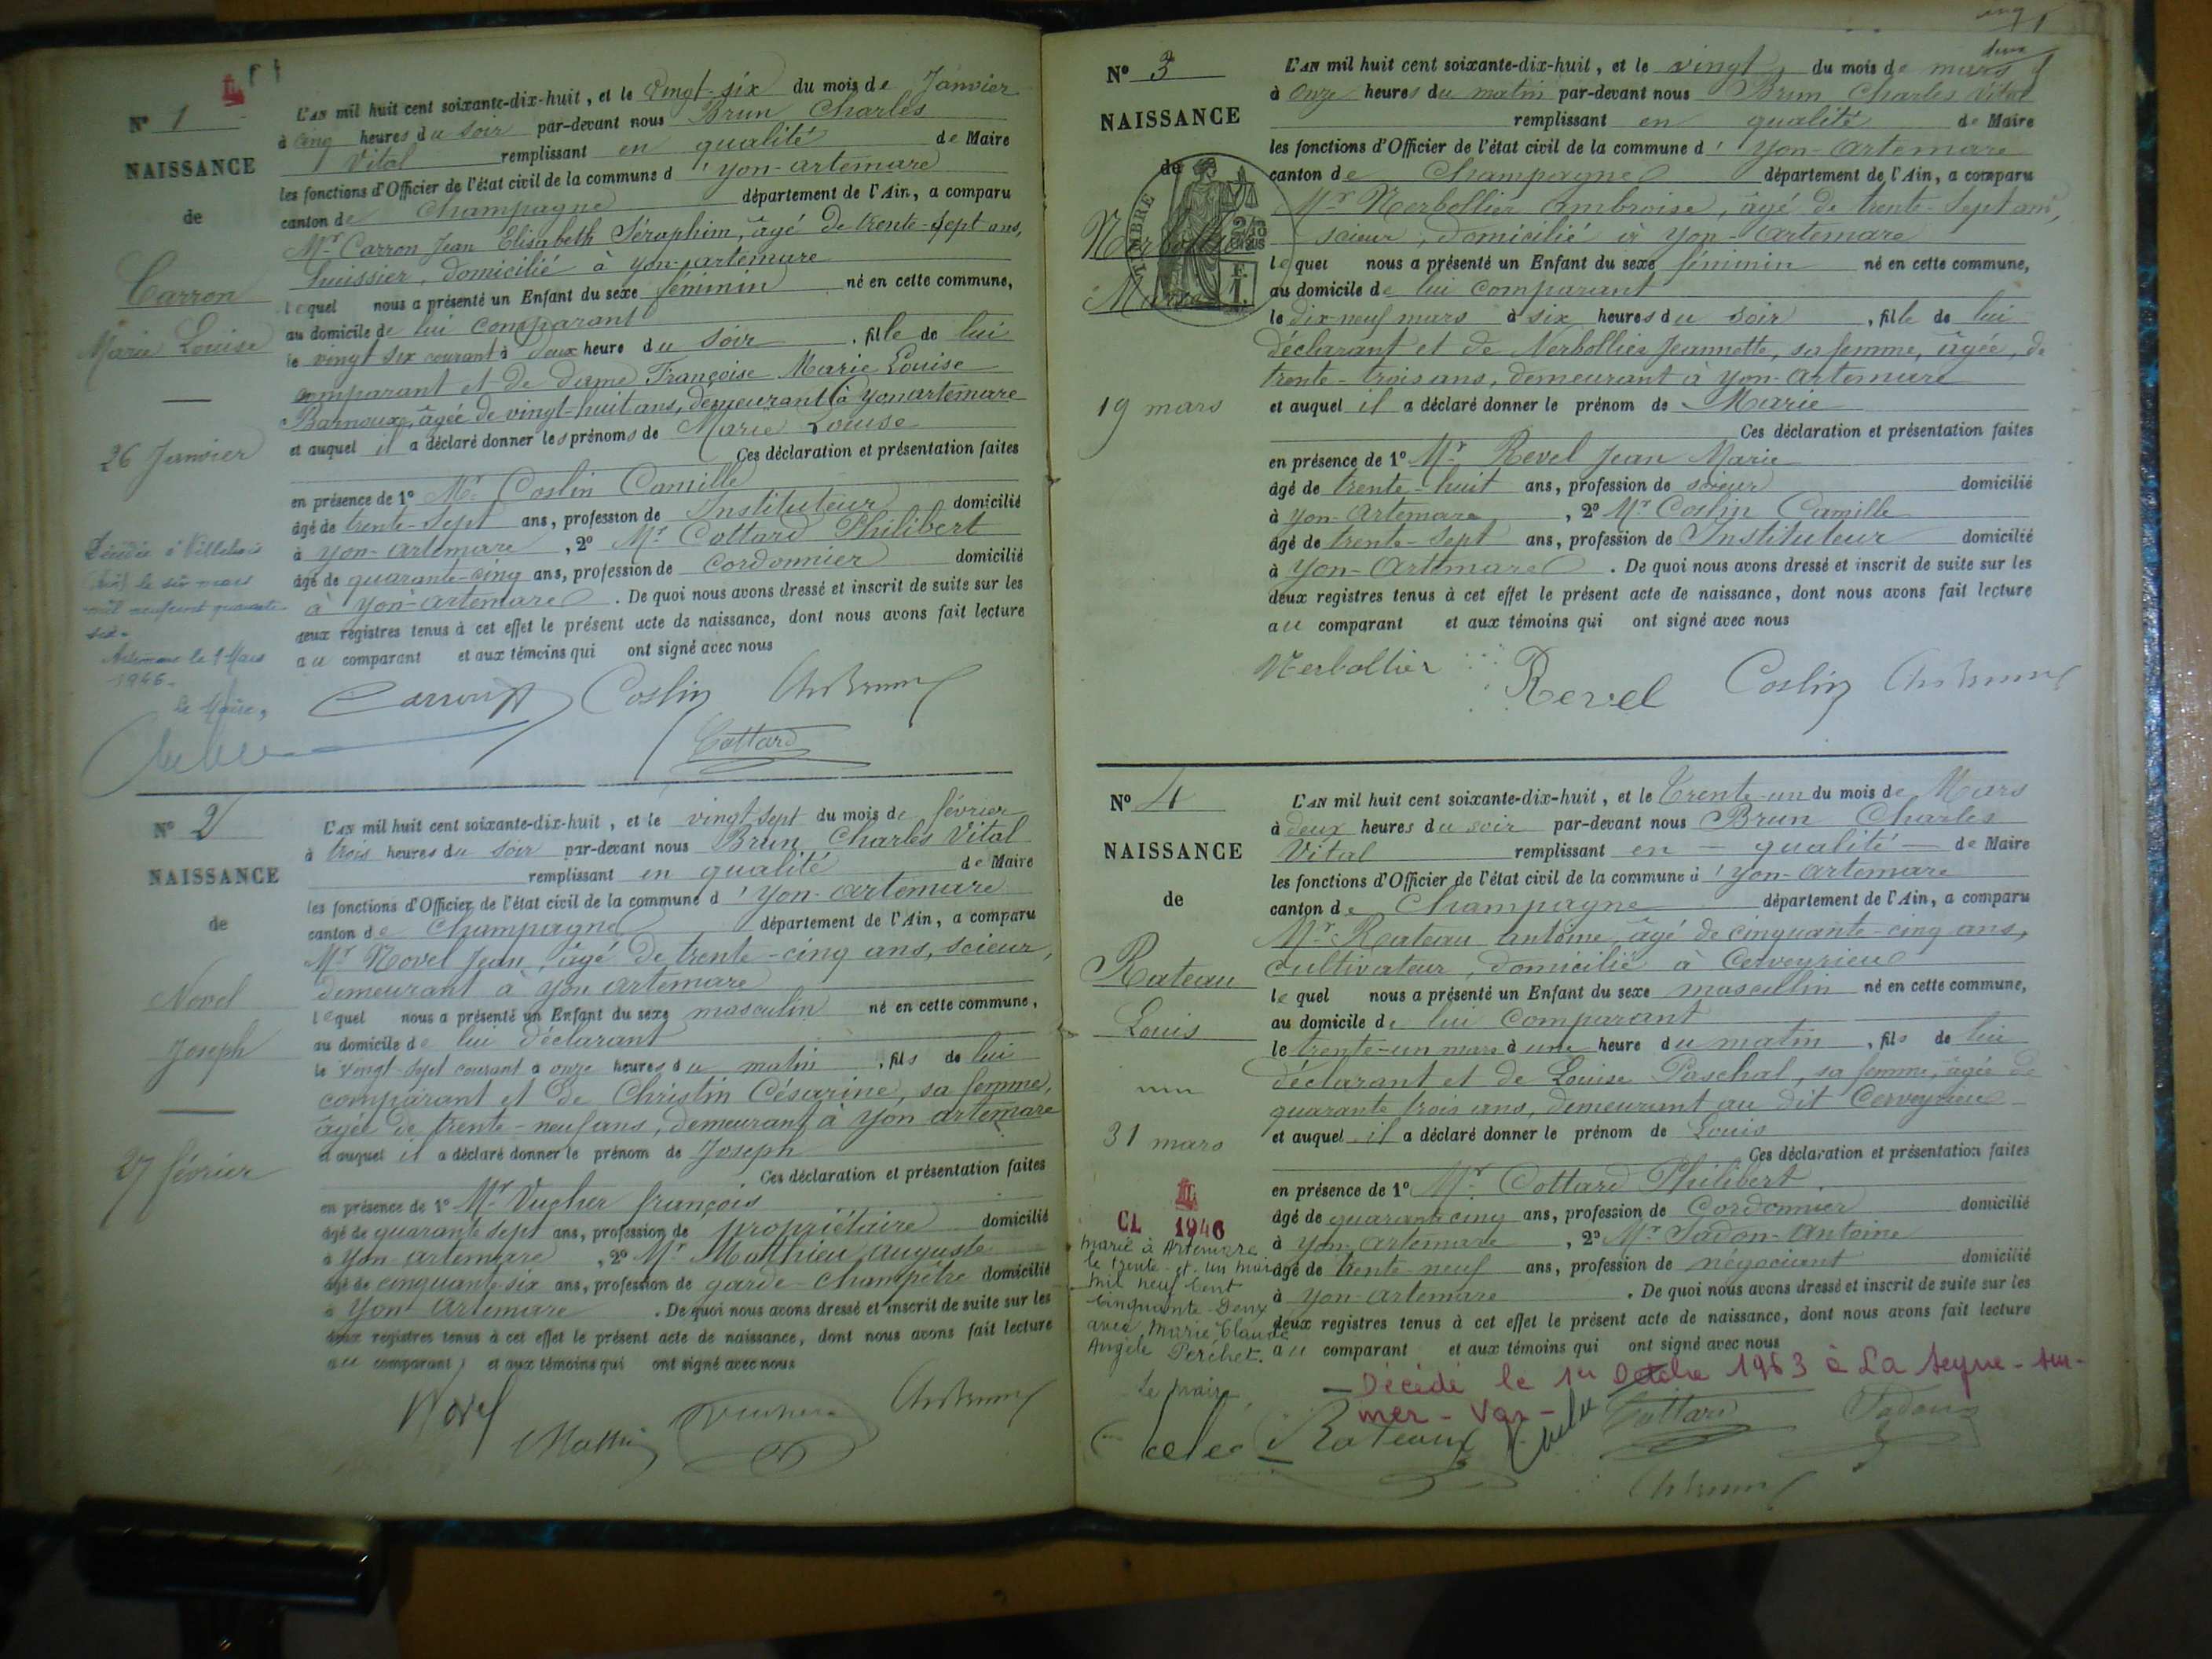 N° 1
NAISSANCE
de
Carron
Marie Louise
26 Janvier
Décédée à
le six mars
mil neuf cent quarante
six.
Artemare le 9 Mars
1946.
le Maire,
L'AN mil huit cent soixante-dix-huit, et le vingt-six du mois de Janvier
à cinq heures du soir par-devant nous Brun Charles
Vital remplissant en qualité de Maire
les fonctions d'Officier de l'état civil de la commune d'yon-artemare
canton de Champagne département de l'Ain, a comparu
Mr Carron Jean Elisabeth Séraphim, âgé de trente-sept ans,
huissier, domicilié à yon-artemare
lequel nous a présenté un Enfant du sexe féminin né en cette commune,
au domicile de lui comparant
le vingt six courant à deux heure du soir, fille de lui
comparant et de dame Françoise Marie Louise
Barnoux, âgée de vingt-huit ans, demeurant à yon artemare
et auquel il a déclaré donner les prénoms de Marie Louise
Ces déclaration et présentation faites
en présence de 1° Mr Coslin Camille
âgé de trente-sept ans, profession de Instituteur domicilié
à yon-artemare, 2° Mr Cottard Philibert
âgé de quarante-cinq ans, profession de cordonnier domicilié
à yon-artemare. De quoi nous avons dressé et inscrit de suite sur les
deux registres tenus à cet effet le présent acte de naissance, dont nous avons fait lecture
au comparant et aux témoins qui ont signé avec nous
Carron Coslin Ch Brun
Cottard
N° 2
NAISSANCE
de
Novel
Joseph
27 février
L'AN mil huit cent soixante-dix-huit, et le vingt sept du mois de février
à trois heures du soir par-devant nous Brun Charles Vital
remplissant en qualité de Maire
les fonctions d'Officier de l'état civil de la commune d'yon-artemare
canton de Champagne département de l'Ain, a comparu
Mr Novel Jean, âgé de trente-cinq ans, scieur,
demeurant à yon artemare
lequel nous a présenté un Enfant du sexe masculin né en cette commune,
au domicile de lui déclarant
le vingt-sept courant à onze heures du matin, fils de lui
comparant et de Christin Césarine, sa femme,
âgée de trente-neuf ans, demeurant à yon artemare
et auquel il a déclaré donner le prénom de Joseph
Ces déclaration et présentation faites
en présence de 1° Mr Vucher françois
âgé de quarante sept ans, profession de propriétaire domicilié
à yon-artemare, 2° Mr Matthieu auguste
âgé de cinquante-six ans, profession de garde-champêtre domicilié
à yon artemare. De quoi nous avons dressé et inscrit de suite sur les
deux registres tenus à cet effet le présent acte de naissance, dont nous avons fait lecture
au comparant et aux témoins qui ont signé avec nous
Novel Matthieu Vucher Ch Brun
N° 3
NAISSANCE
de
Nerbollier
Marie
19 mars
TIMBRE
L'AN mil huit cent soixante-dix-huit, et le vingt du mois de mars
à onze heures du matin par-devant nous Brun Charles Vital
remplissant en qualité de Maire
les fonctions d'Officier de l'état civil de la commune d'yon-artemare
canton de Champagne département de l'Ain, a comparu
Mr Nerbollier Ambroise, âgé de trente-sept ans,
scieur, domicilié à yon-artemare
lequel nous a présenté un Enfant du sexe féminin né en cette commune,
au domicile de lui comparant
le dix-neuf mars à six heures du soir, fille de lui
déclarant et de Nerbollier Jeannette, sa femme, âgée, de
trente-trois ans, demeurant à yon-artemare
et auquel il a déclaré donner le prénom de Marie
Ces déclaration et présentation faites
en présence de 1° Mr Revel Jean Marie
âgé de trente-huit ans, profession de scieur domicilié
à yon-artemare, 2° Mr Coslin Camille
âgé de trente-sept ans, profession de Instituteur domicilié
à yon-artemare. De quoi nous avons dressé et inscrit de suite sur les
deux registres tenus à cet effet le présent acte de naissance, dont nous avons fait lecture
au comparant et aux témoins qui ont signé avec nous
Nerbollier Revel Coslin Ch Brun
N° 4
NAISSANCE
de
Rateau
Louis
31 mars
CL 1946
marié à Artemare
le trente-et-un mai
mil neuf cent
cinquante-deux
avec Marie Claude
Angèle Perchet.
Le maire
L'AN mil huit cent soixante-dix-huit, et le trente-un du mois de Mars
à deux heures du soir par-devant nous Brun Charles
Vital remplissant en qualité de Maire
les fonctions d'Officier de l'état civil de la commune d'yon-artemare
canton de Champagne département de l'Ain, a comparu
Mr Rateau antoine, âgé de cinquante-cinq ans,
cultivateur, domicilié à Cerveyrieu
lequel nous a présenté un Enfant du sexe masculin né en cette commune,
au domicile de lui comparant
le trente-un mars à une heure du matin, fils de lui
déclarant et de Louise Paschal, sa femme, âgée de
quarante trois ans, demeurant au dit Cerveyrieu
et auquel il a déclaré donner le prénom de Louis
Ces déclaration et présentation faites
en présence de 1° Mr Cottard Philibert
âgé de quarante cinq ans, profession de Cordonnier domicilié
à yon-artemare, 2° Mr Jadon Antoine
âgé de trente-neuf ans, profession de négociant domicilié
à yon-artemare. De quoi nous avons dressé et inscrit de suite sur les
deux registres tenus à cet effet le présent acte de naissance, dont nous avons fait lecture
au comparant et aux témoins qui ont signé avec nous
Décédé le 1er Octobre 1963 à La Seyne-sur-
mer - Var -
Rateau Cottard Jadon
Ch Brun